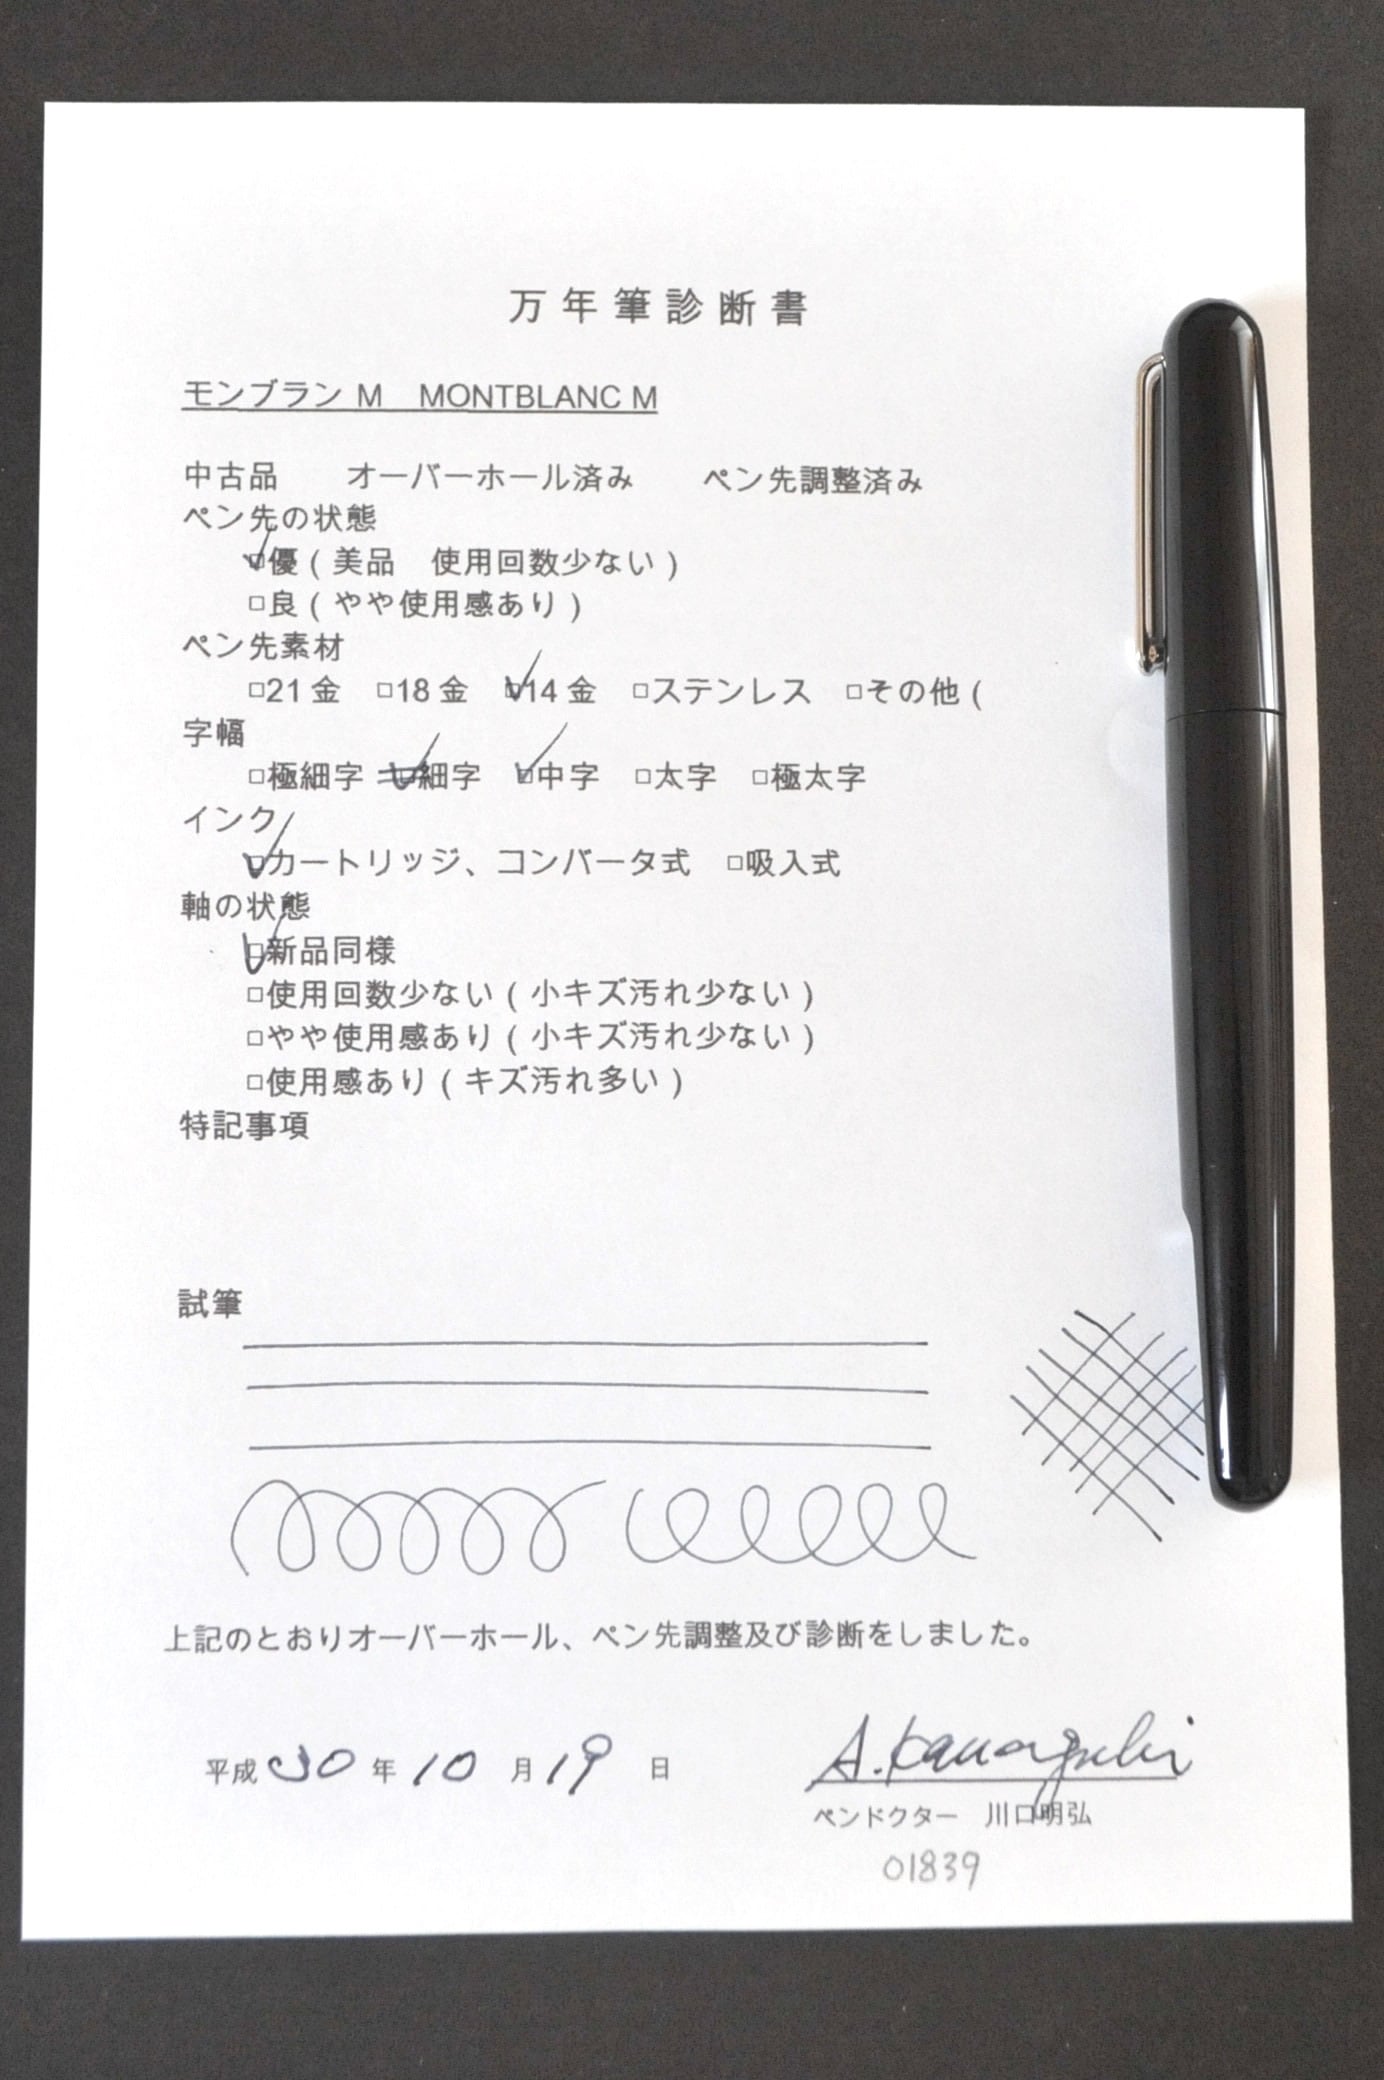 万年筆診断書
モンブラン M　MONTBLANC M
中古品　　オーバーホール済み　　ペン先調整済み
ペン先の状態
☑優（美品　使用回数少ない）
□良（やや使用感あり）
ペン先素材
□21 金　□18 金　☑14 金　□ステンレス　□その他（
字幅
□極細字　☑細字　☑中字　□太字　□極太字
インク
☑カートリッジ、コンバータ式　□吸入式
軸の状態
☑新品同様
□使用回数少ない（小キズ汚れ少ない）
□やや使用感あり（小キズ汚れ少ない）
□使用感あり（キズ汚れ多い）
特記事項
試筆
上記のとおりオーバーホール、ペン先調整及び診断をしました。
平成 30 年 10 月 19 日
A. Kawaguchi
ペンドクター　川口明弘
01839